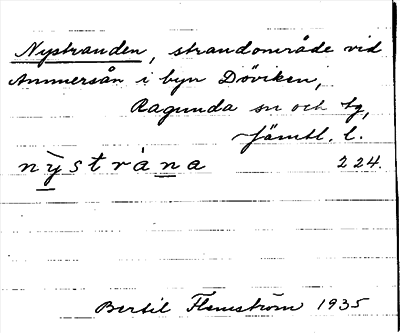 Nystranden, strandområde vid
Ammersån i byn Döviken,
Ragunda sn och tg,
Jämtl. l.
nỳstràna 224.
Bertil Flemström 1935